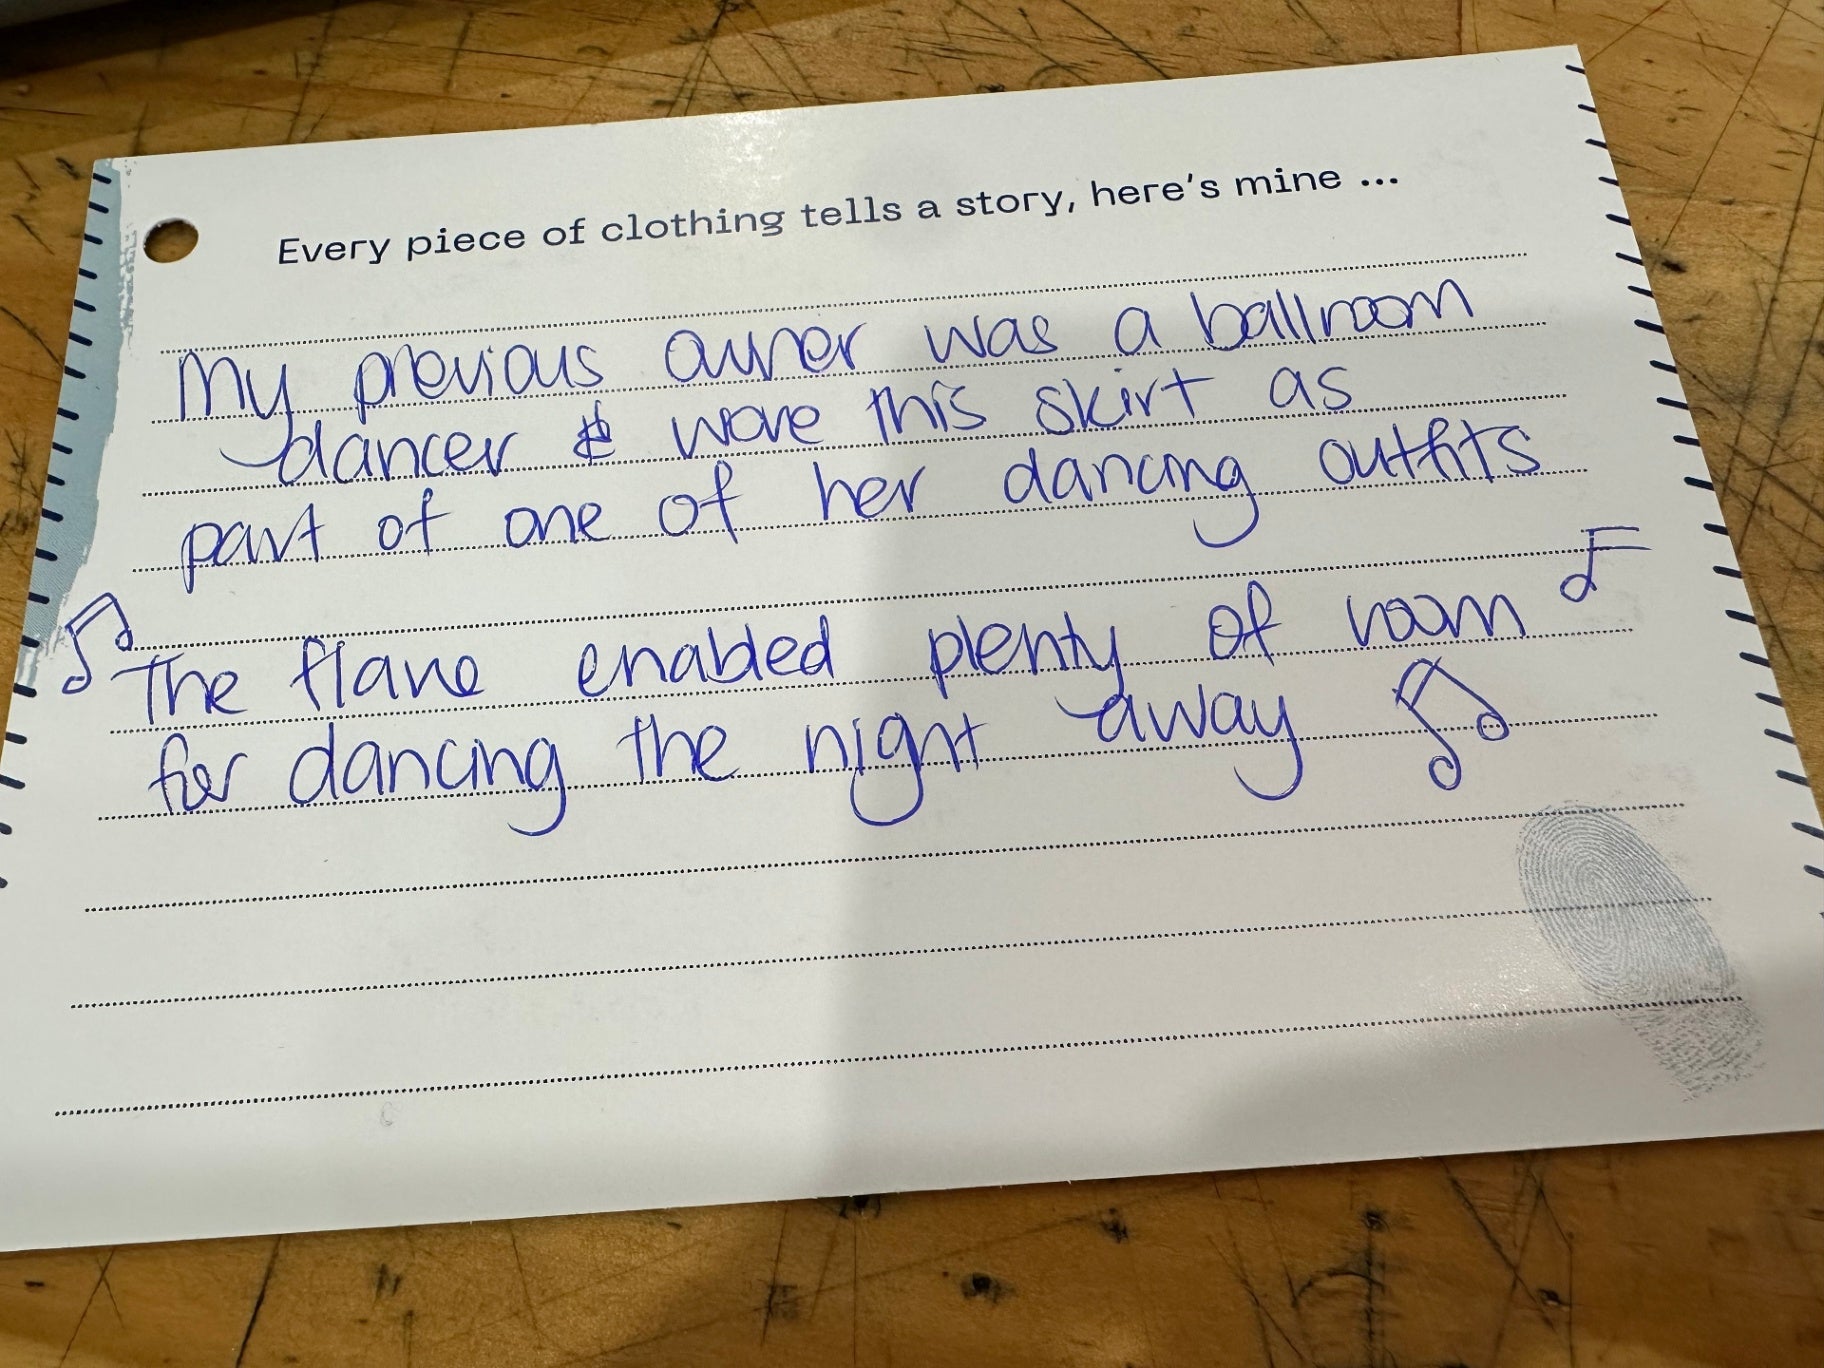 Every piece of clothing tells a story, here's mine ...
My previous owner was a ballroom
dancer & wore this skirt as
part of one of her dancing outfits
The flare enabled plenty of room
for dancing the night away